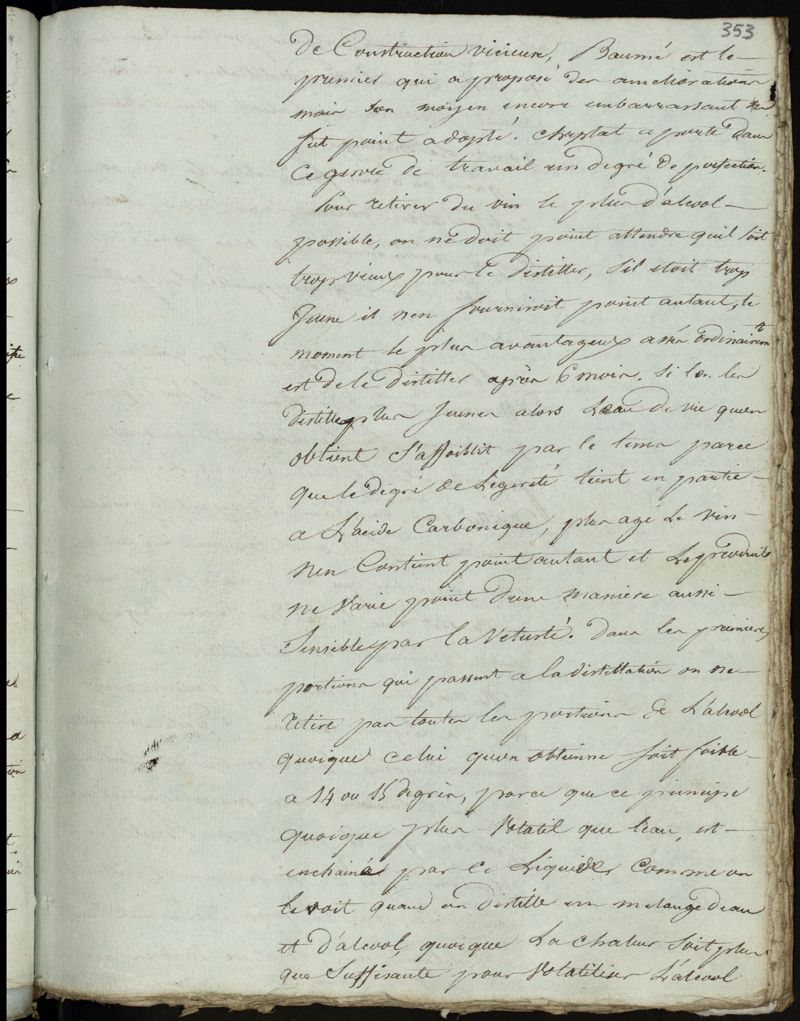 353
de Construction vicieuse, Baumé est le
premier qui a proposé des ameliorations
mais son moyen encore embarrassant ne
fut point adopté. Chaptal a porté dans
Ce genre de travail un degré de perfection.
Pour retirer du vin le plus d'alcool
possible, on ne doit point attendre qu'il soit
trop vieux pour le distiller, s'il etoit trop
Jeune il n'en fourniroit point autant, le
moment le plus avantageux assés ordinairemt
est de le distiller après 6 mois. Si l'on les
distille plus Jeunes alors L'eau de vie qu'on
obtient S'affoiblit par le tems parce
que le degré de Légereté tient en partie
a L'acide Carbonique, plus agé Le vin
n'en Contient point autant et Le produit
ne Varie point d'une maniere aussi
Sensible par la Vetusté. Dans les premieres
portions qui passent a la distillation on ne
retire pas toutes les portions de L'alcool
quoique celui qu'on obtienne soit foible
a 14 ou 15 degrés, parce que ce principe
quoique plus Volatil que l'eau, est
enchainé par ce Liquide Comme on
le voit quand on distille un melange d'eau
et d'alcool, quoique La chaleur Soit plus
que Suffisante pour Volatiliser L'alcool